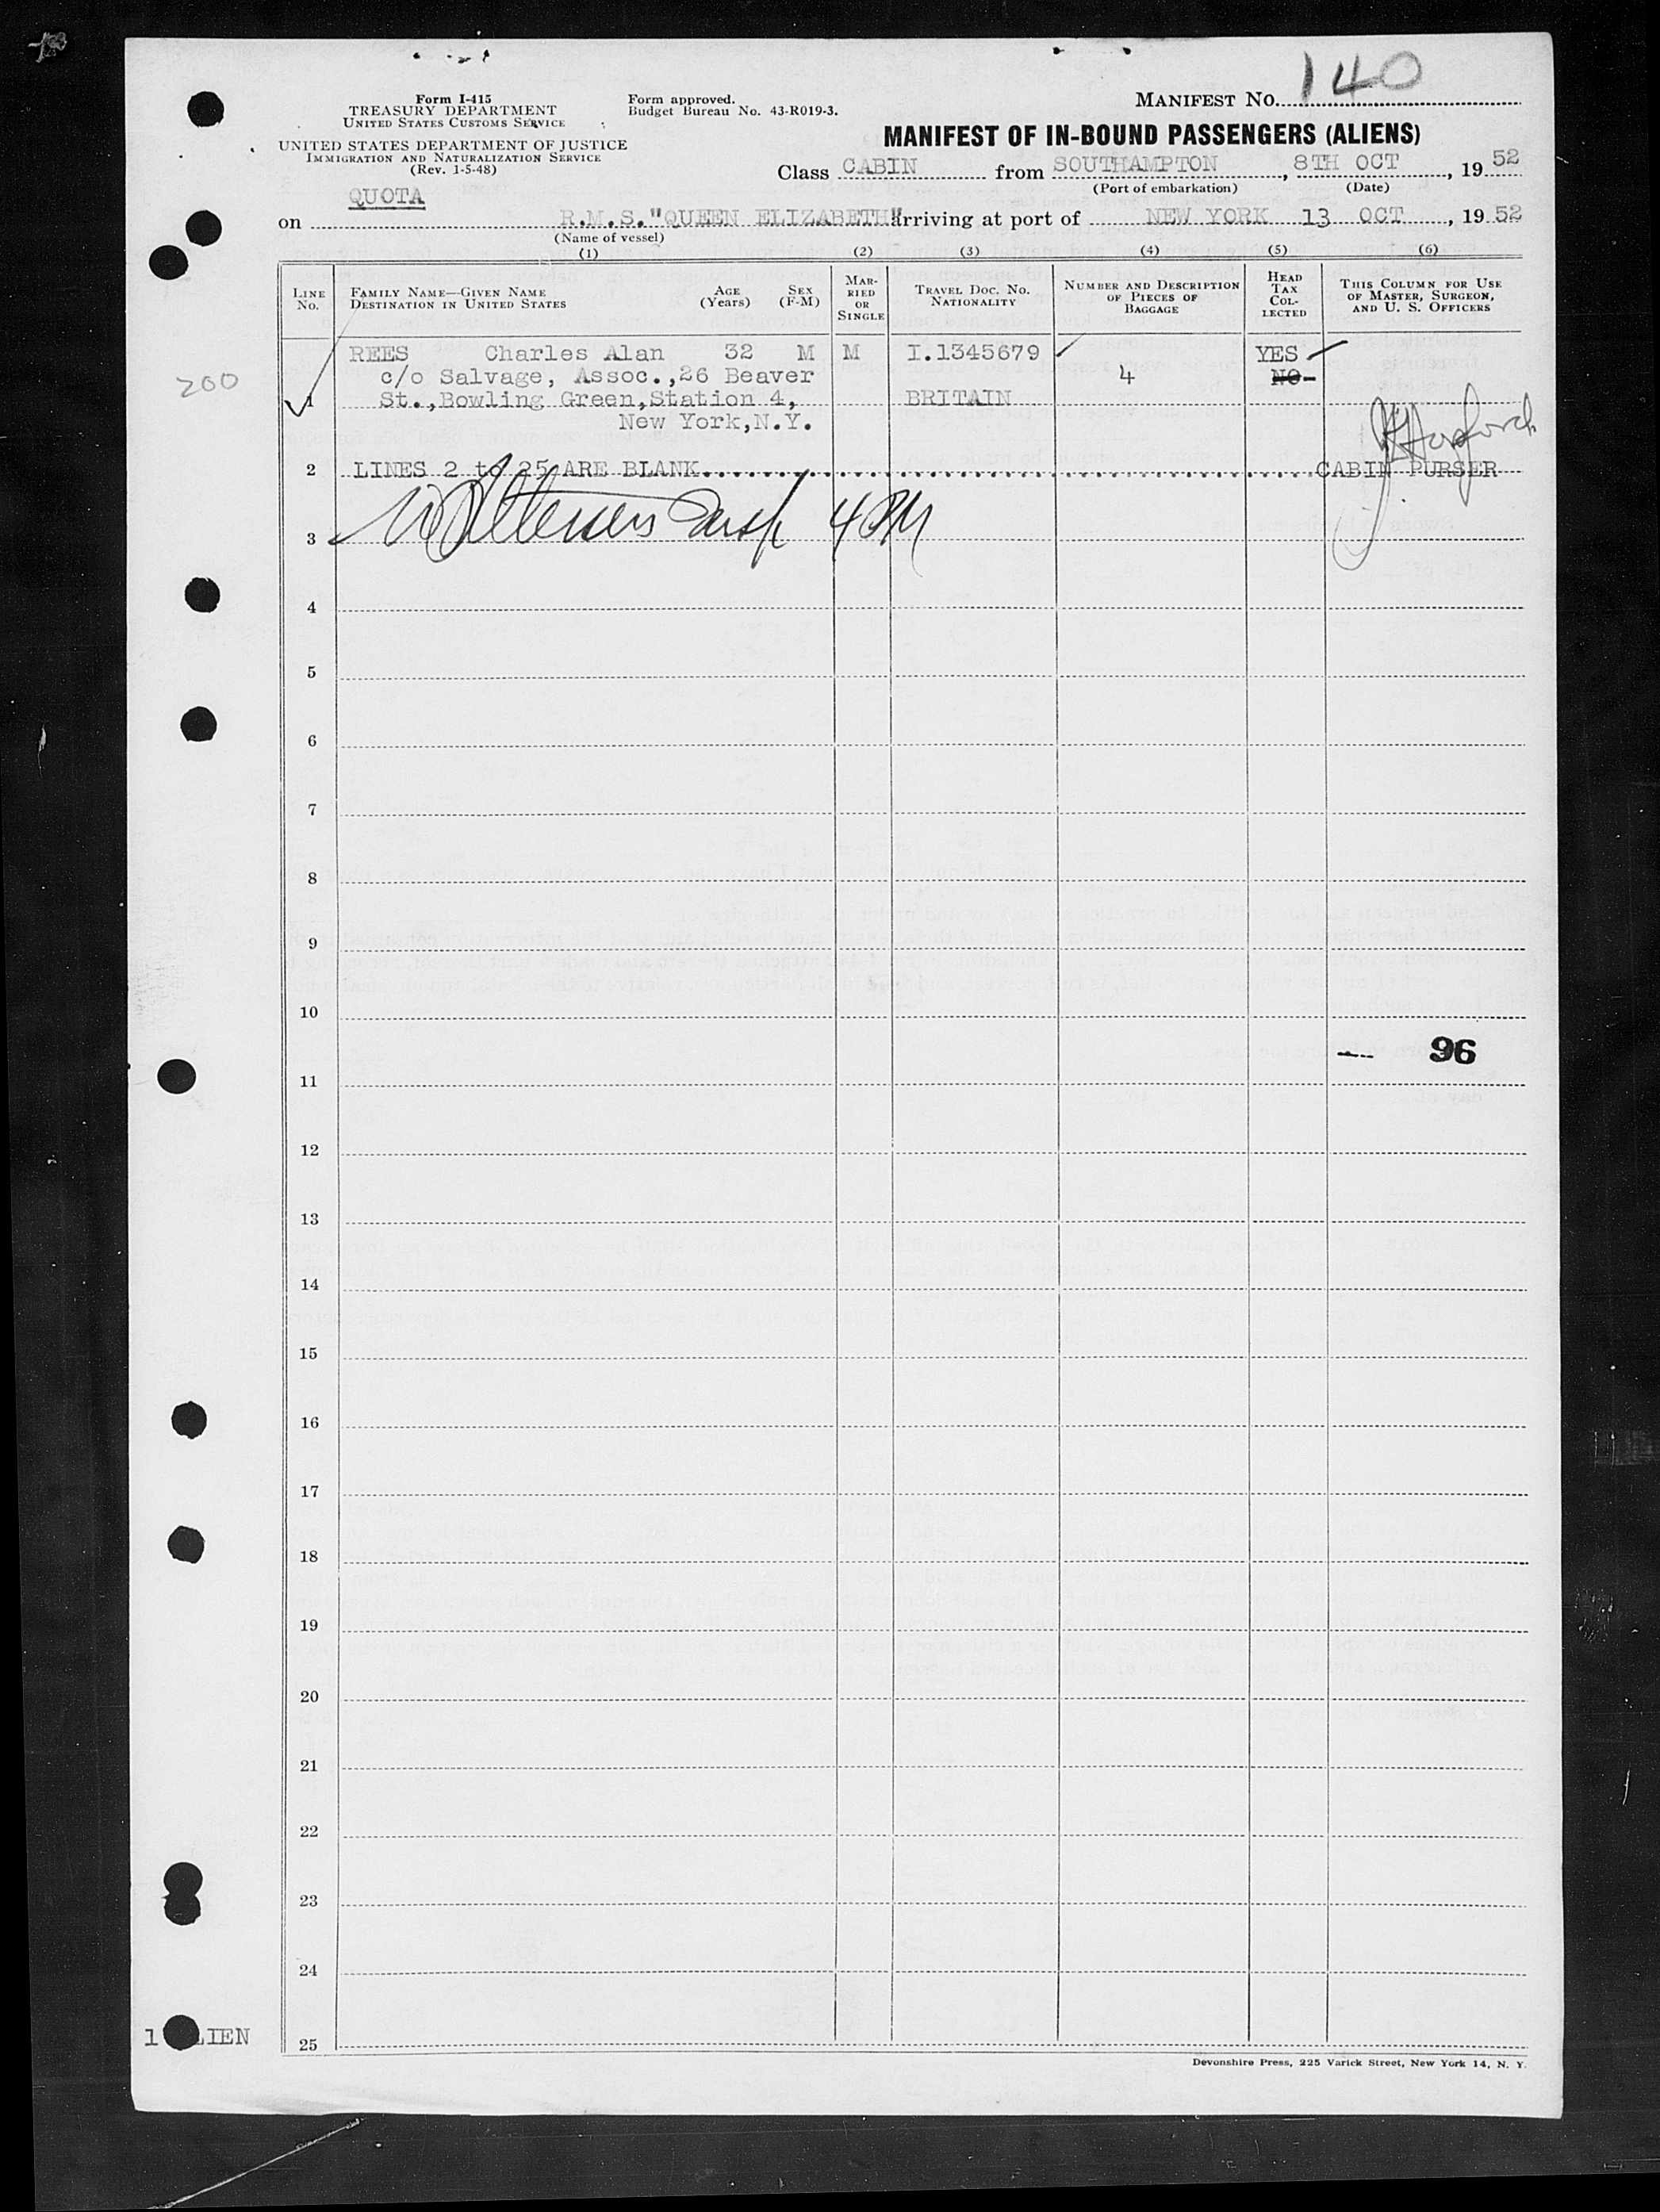 140
Form I-415
TREASURY DEPARTMENT
UNITED STATES CUSTOMS SERVICE
UNITED STATES DEPARTMENT OF JUSTICE
IMMIGRATION AND NATURALIZATION SERVICE
(Rev. 1-5-48)
Form approved.
Budget Bureau No. 43-R019-3.
MANIFEST NO.
MANIFEST OF IN-BOUND PASSENGERS (ALIENS)
Class CABIN from SOUTHAMPTON, 8TH OCT, 19 52
(Port of embarkation) (Date)
QUOTA
on R.M.S. "QUEEN ELIZABETH" arriving at port of NEW YORK 13 OCT, 19 52
(Name of vessel)
(1) (2) (3) (4) (5) (6)
LINE No. FAMILY NAME—GIVEN NAME DESTINATION IN UNITED STATES AGE (Years) SEX (F-M) MARRIED OR SINGLE TRAVEL DOC. No. NATIONALITY NUMBER AND DESCRIPTION OF PIECES OF BAGGAGE HEAD TAX COLLECTED THIS COLUMN FOR USE OF MASTER, SURGEON, AND U. S. OFFICERS
REES Charles Alan 32 M M I.1345679 YES
200 c/o Salvage, Assoc.,26 Beaver 4 NO
1 St.,Bowling Green,Station 4, BRITAIN
New York,N.Y.
2 LINES 2 to 25 ARE BLANK CABIN PURSER
3 4 PM
4
5
6
7
8
9
10
96
11
12
13
14
15
16
17
18
19
20
21
22
23
24
1 LIEN
25
Devonshire Press, 225 Varick Street, New York 14, N. Y.